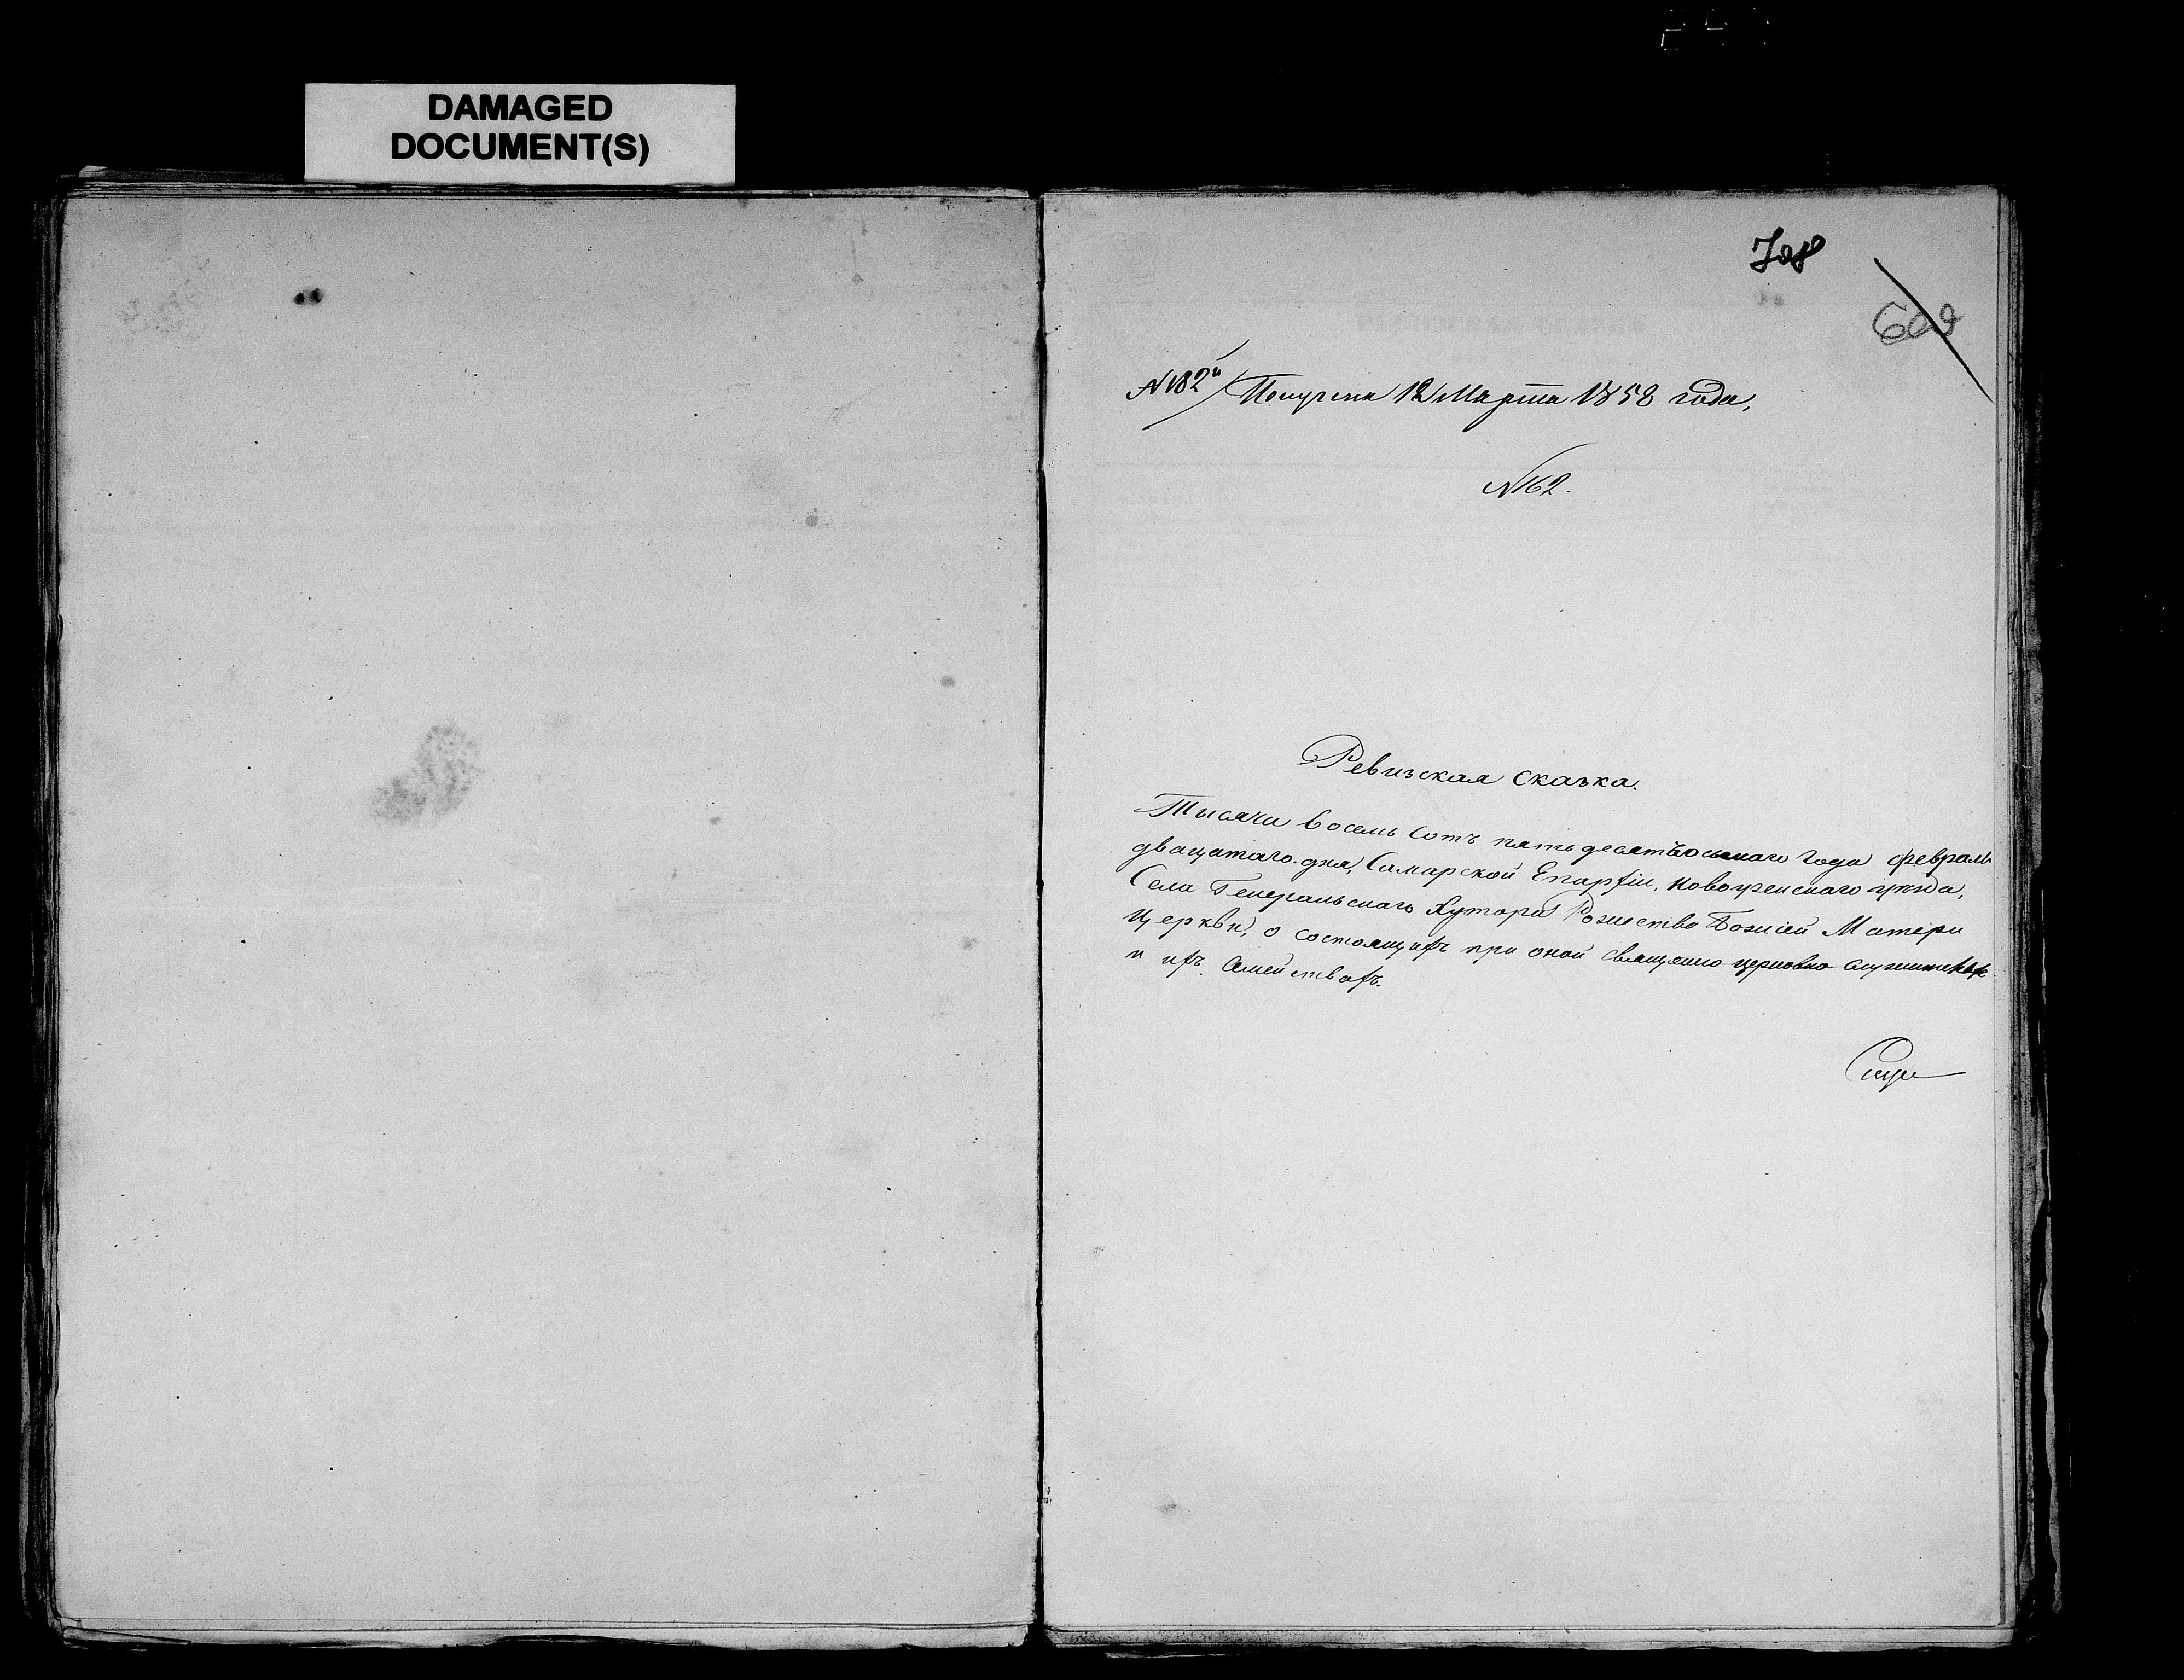 DAMAGED
DOCUMENT(S)
708
609
N182й Получена 12 Марта 1858 года,
N162.
Ревизская сказка.
Тысячи восемь сотъ пятьдесятъ осьмаго года февраля
двацатаго дня, Самарской Епархіи, Новоузенскаго уѣзда,
Села Генеральскаго Хутора Рожества Божией Матери
Церкви, о состоящихъ при оной священно церковно служителях
и ихъ Семействахъ.